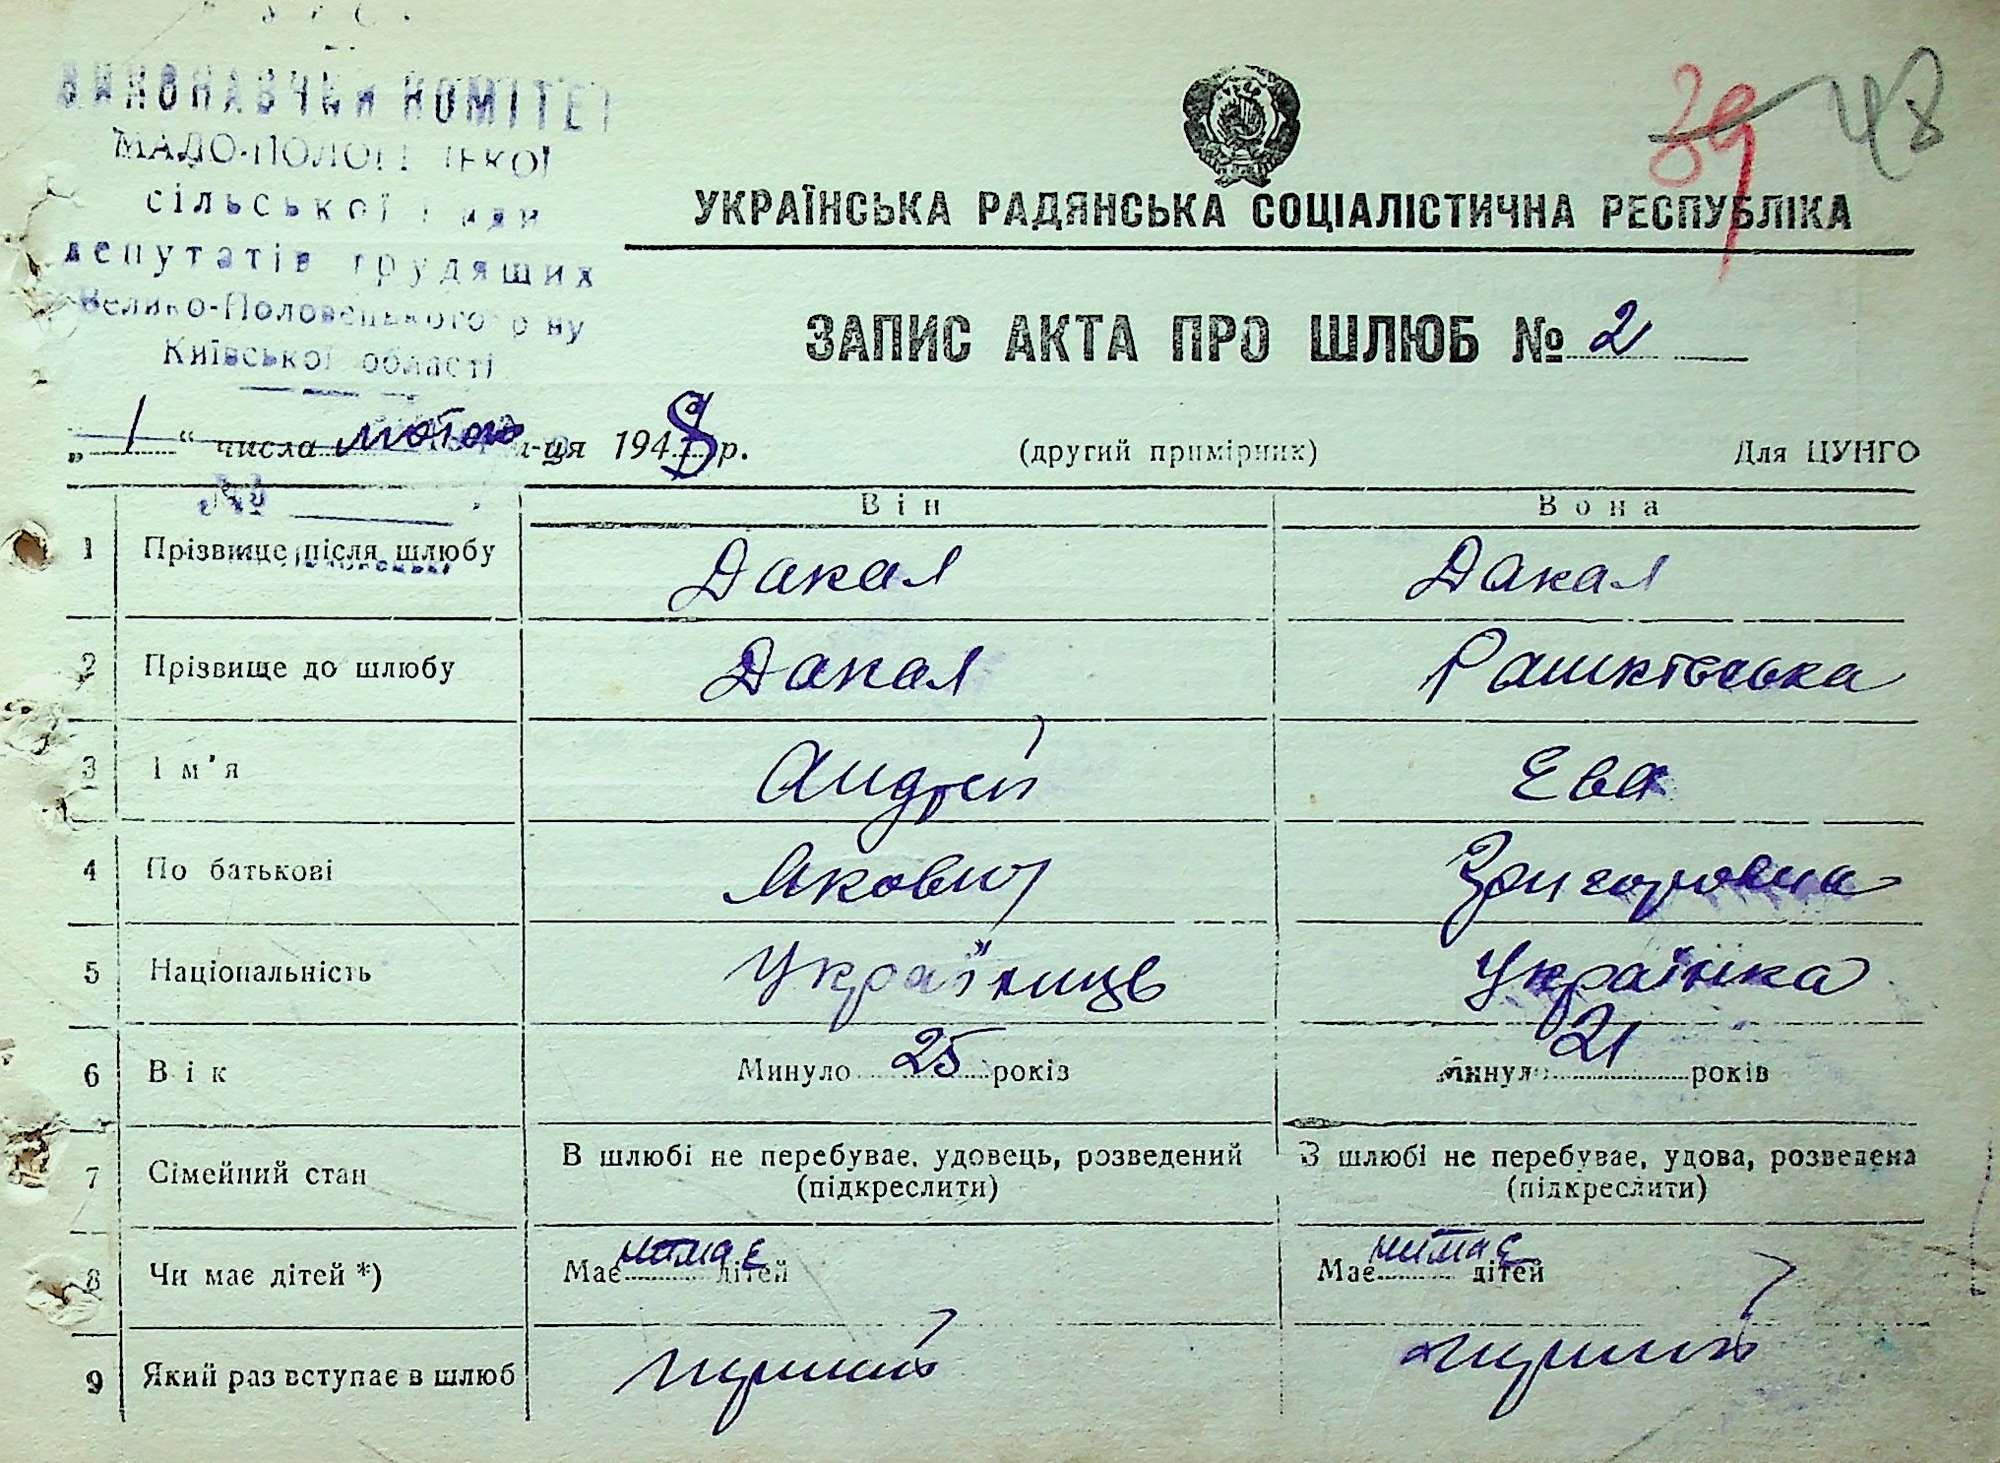 ВИКОНАВЧИЙ КОМІТЕТ
сільської
депутатів трудящих
Велико-Половецького
Київської області
39 48
УКРАЇНСЬКА РАДЯНСЬКА СОЦІАЛІСТИЧНА РЕСПУБЛІКА
ЗАПИС АКТА ПРО ШЛЮБ № 2
„ 1 “ числа лютого м-ця 1948 р. (другий примірник) Для ЦУНГО
Він Вона
1 Прізвище після шлюбу Дакал Дакал
2 Прізвище до шлюбу Дакал
3 Ім'я Андрей Ева
4 По батькові Якович Григоровна
5 Національність Українець Українка
6 Вік Минуло 25 років Минуло 21 років
7 Сімейний стан В шлюбі не перебуває, удовець, розведений В шлюбі не перебуває, удова, розведена
(підкреслити) (підкреслити)
8 Чи має дітей *) Має нимає дітей Має нимає дітей
9 Який раз вступає в шлюб перший перший